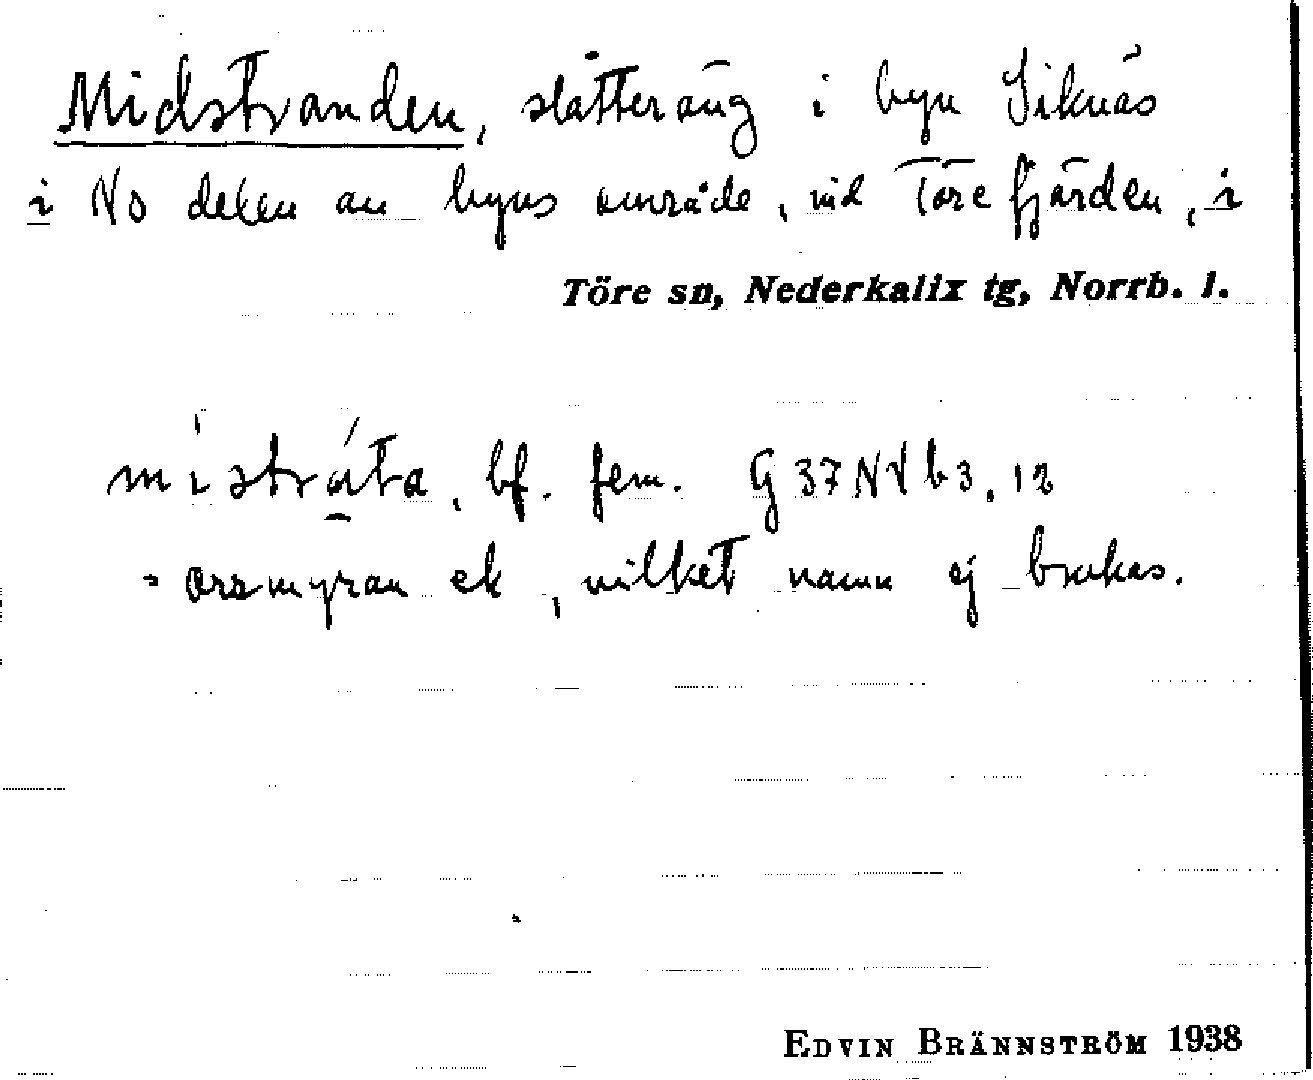 Midstranden, slåtteräng i byn Siknäs
i NO delen av byns område, vid Törefjärden, i
Töre sn, Nederkalix tg, Norrb. l.
mistráta, bf. fem. G 37 NV b 3, 12
= orrmyran ek, vilket namn ej brukas.
EDVIN BRÄNNSTRÖM 1938